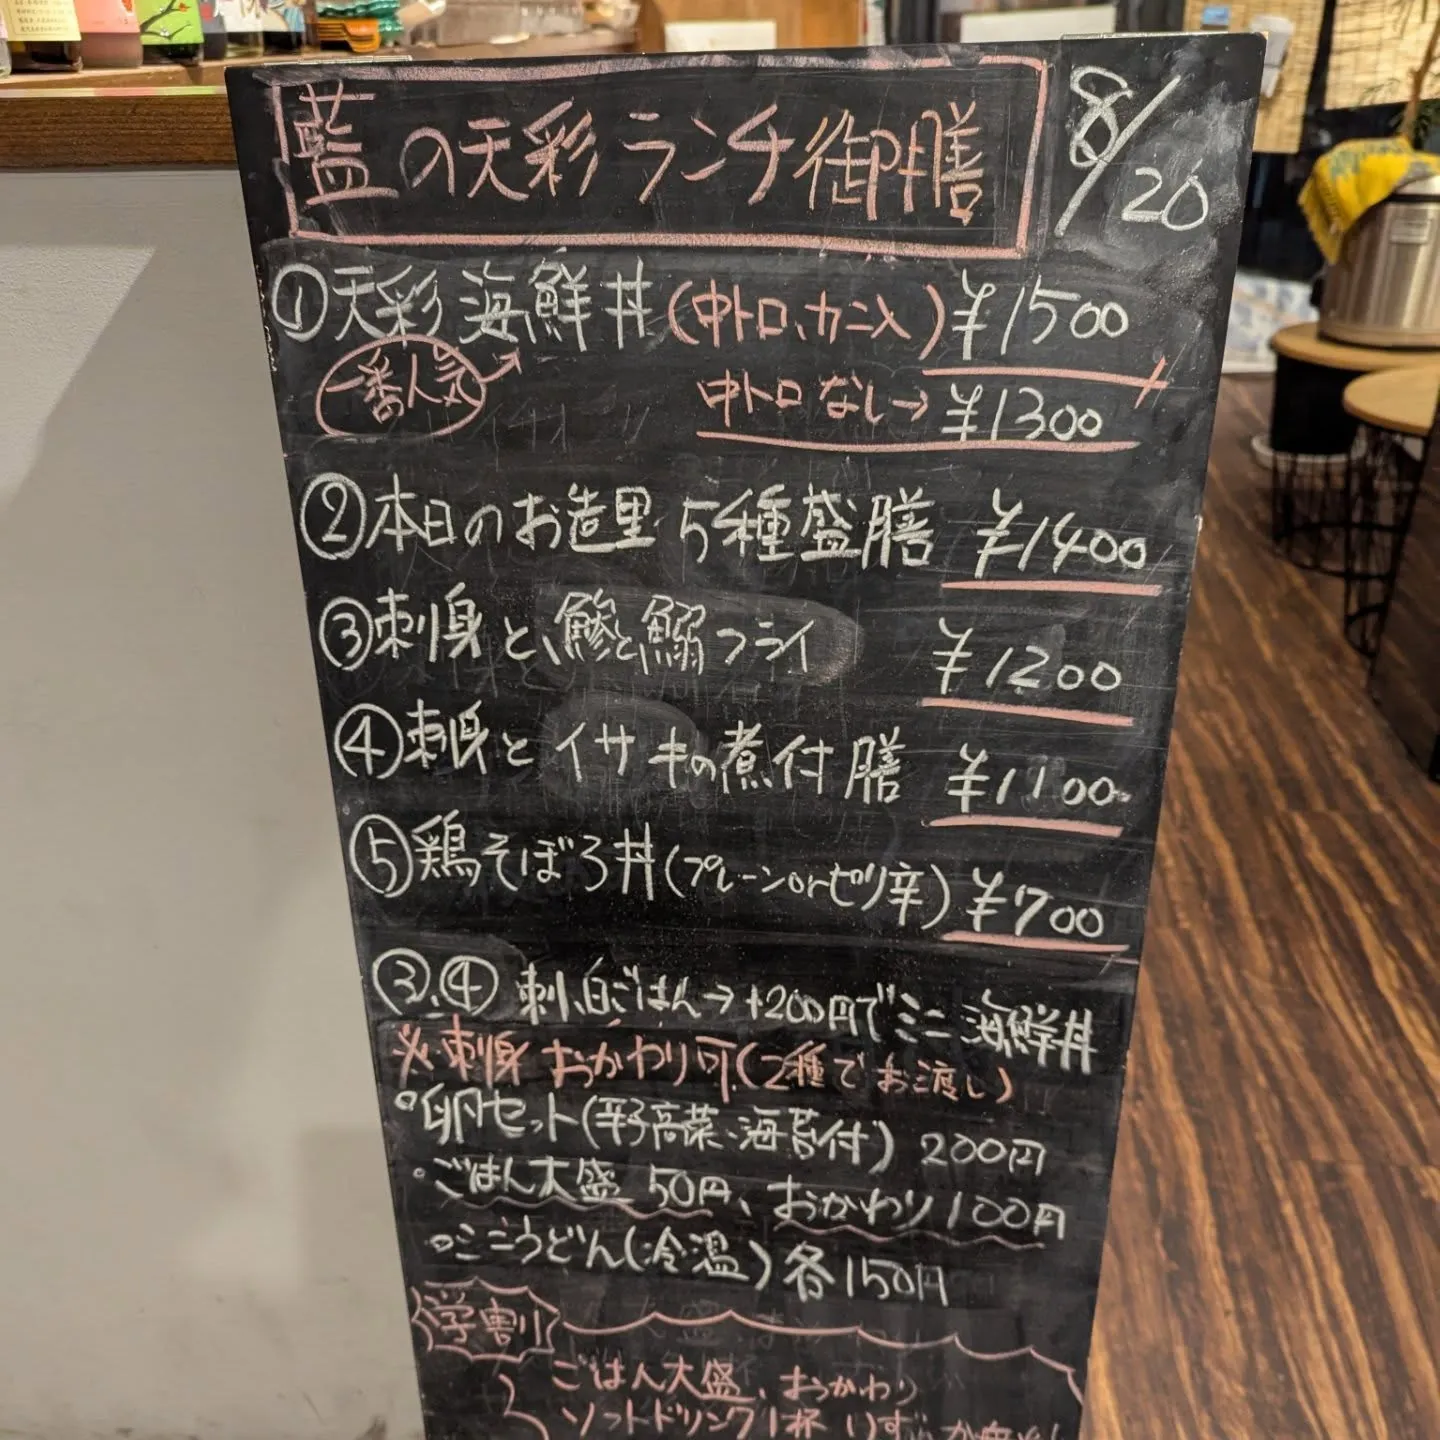 藍の天彩 ランチ御膳
8/20
①天彩 海鮮丼(中トロ、カニ入)¥1500
一番人気
中トロ なし→ ¥1300
②本日のお造里 5種盛膳 ¥1400
③刺身と、鯵と鰯フライ ¥1200
④刺身と イサキの煮付膳 ¥1100
⑤鶏そぼろ丼(プレーンorピリ辛)¥700
③、④ 刺、白ごはん→+200円でミニ海鮮丼
※刺身 おかわり可(2種でお渡し)
○卵セット(辛子高菜・海苔付) 200円
・ごはん大盛 50円、おかわり100円
○ミニうどん(冷温)各150円
学割
ごはん大盛、おかわり
ソフトドリンク1杯 いず